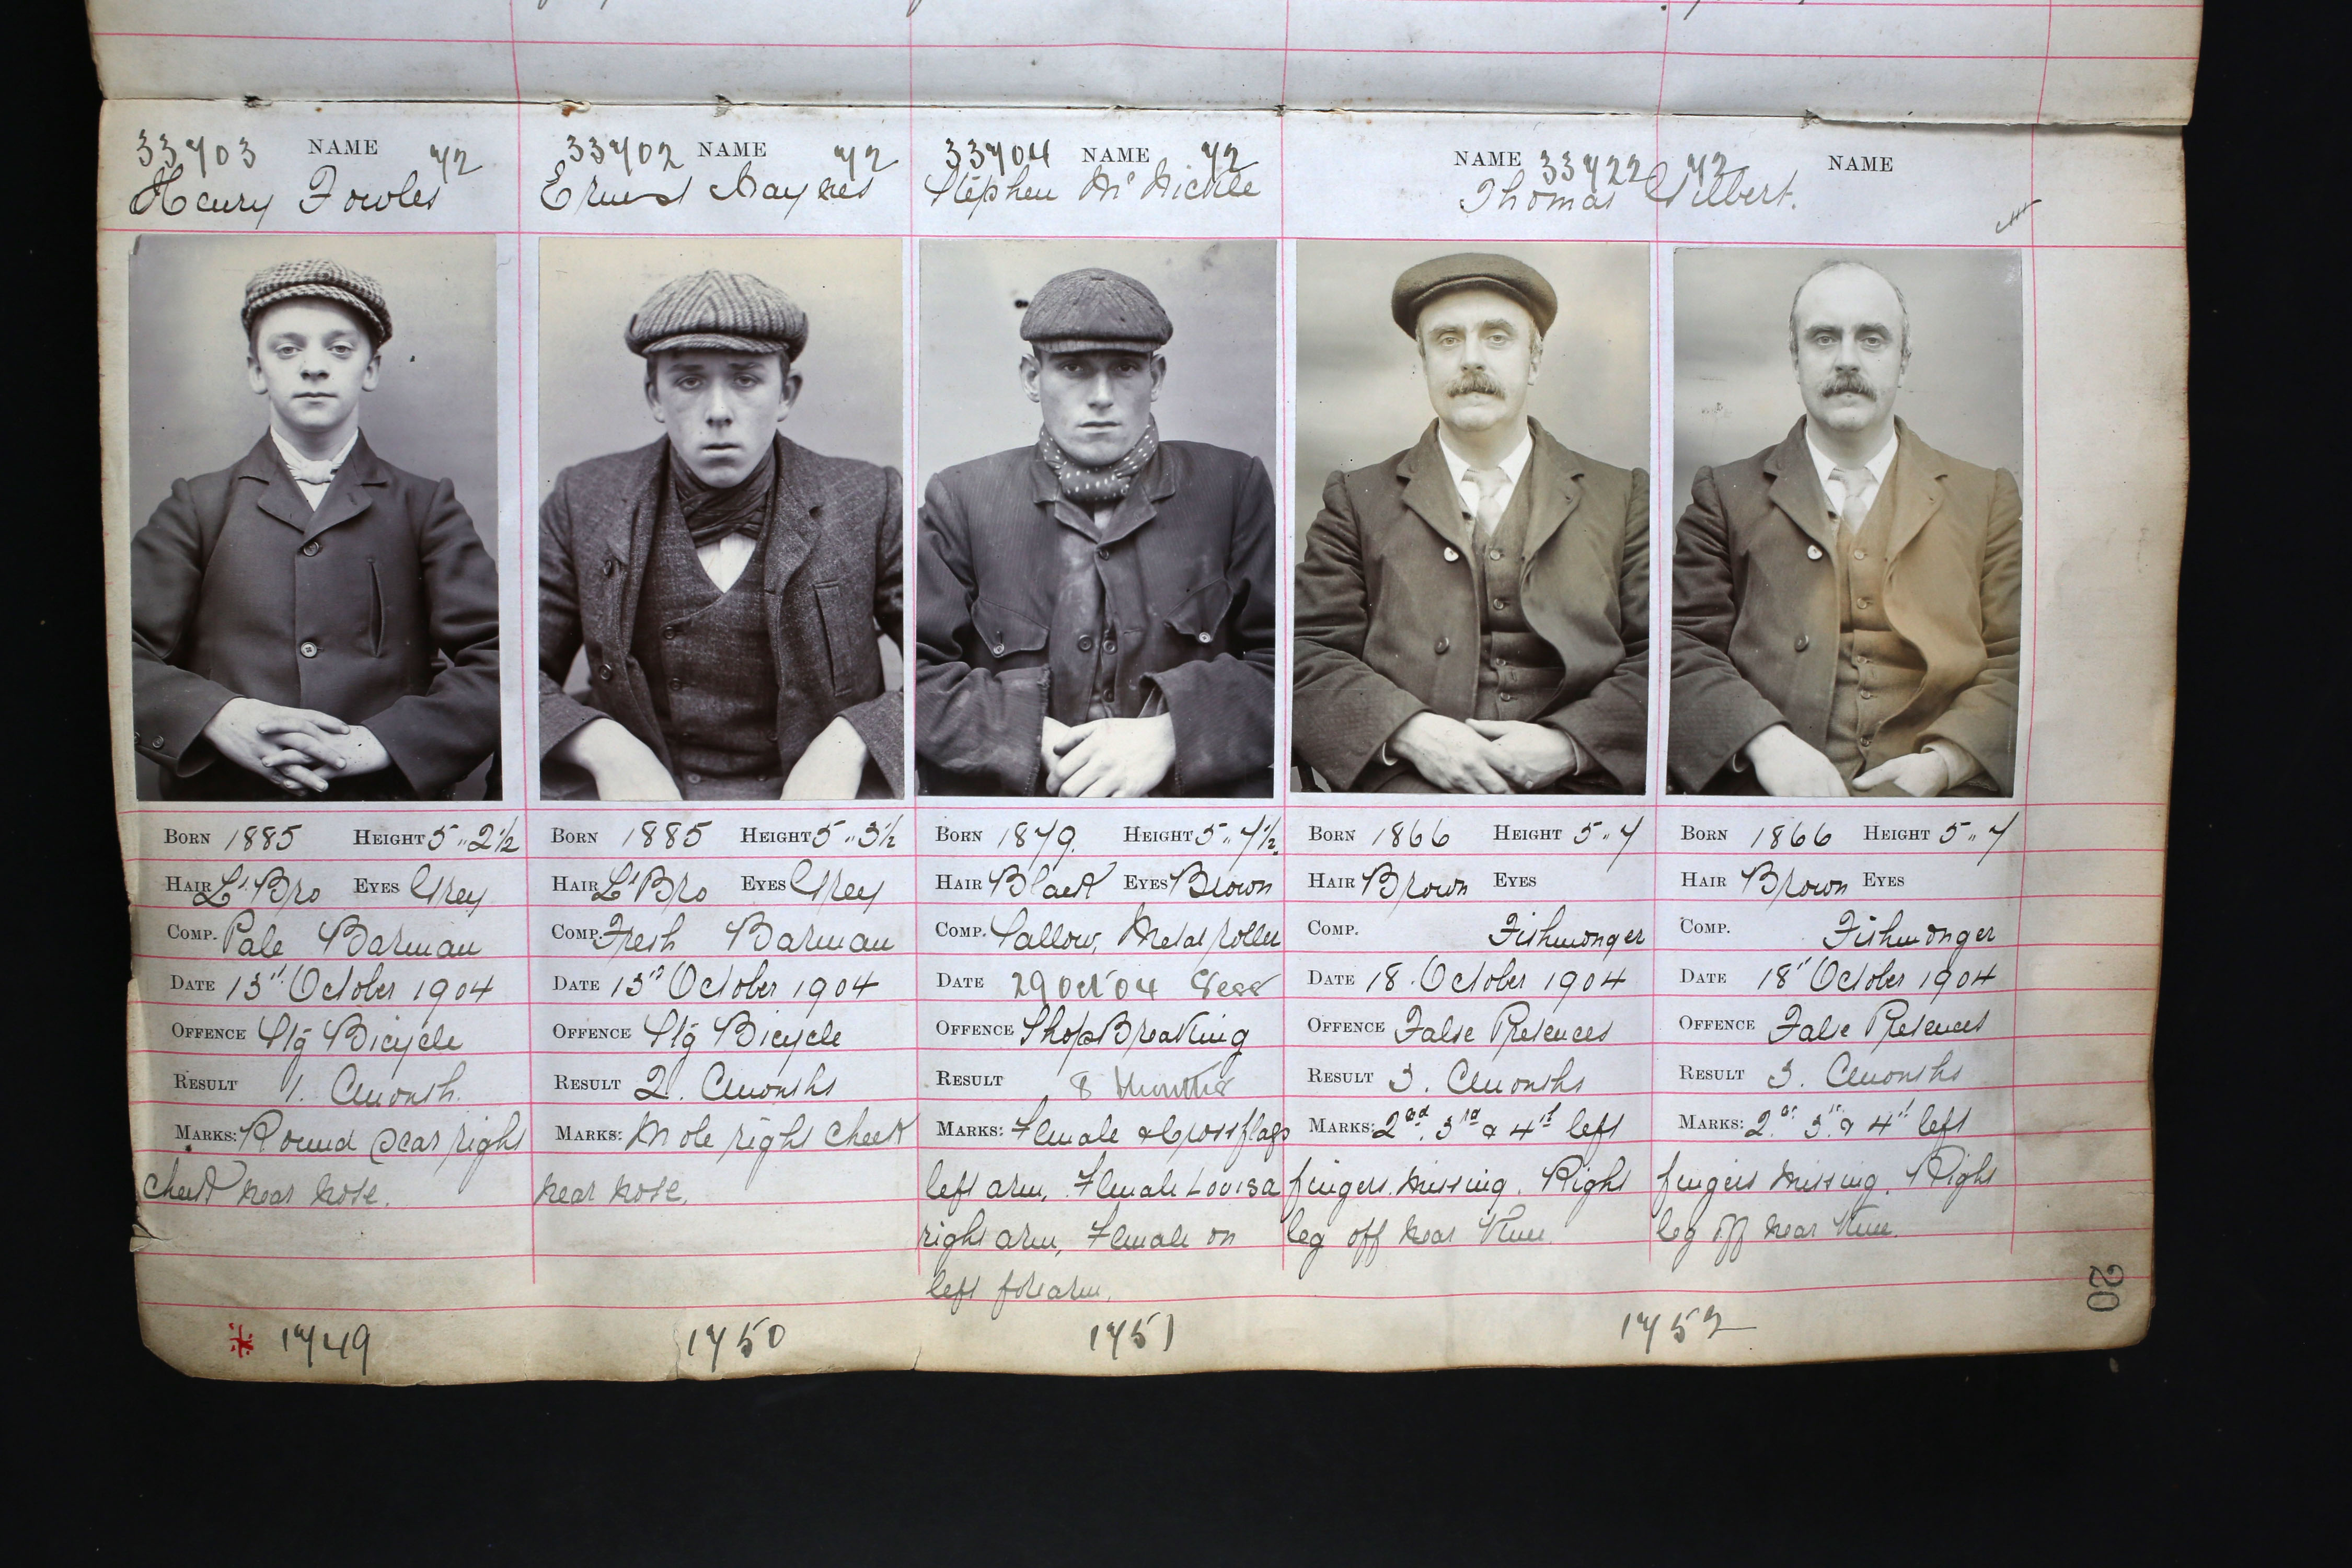 33703 NAME 72
Henry Fowles
Born 1885 Height 5..2½
Hair Lt Bro Eyes Grey
Comp. Pale Barman
Date 13th October 1904
Offence Stg Bicycle
Result 1. Cmonth.
Marks: Round Scar right
cheek near nose.
* 1749
33702 NAME 72
Ernest Haynes
Born 1885 Height 5..3½
Hair Lt Bro Eyes Grey
Comp. Fresh Barman
Date 13th October 1904
Offence Stg Bicycle
Result 2. Cmonths
Marks: Mole right cheek
near nose.
1750
33704 NAME 72
Stephen
Born 1879. Height 5..7½.
Hair Black Eyes Brown
Comp. Sallow, Metal roller
Date 29 Oct 04 Sess
Offence ShopBreaking
Result 8 Months
Marks: Female & Cross flags
left arm, Female Louisa
right arm, Female on
left forearm.
1751
NAME 33722 72 NAME
Thomas Gilbert.
Born 1866 Height 5..7
Hair Brown Eyes
Comp. Fishmonger
Date 18. October 1904
Offence False Pretences
Result 3. Cmonths
Marks: 2nd. 3rd & 4th left
fingers missing. Right
leg off near Knee.
Born 1866 Height 5..7
Hair Brown Eyes
Comp. Fishmonger
Date 18th October 1904
Offence False Pretences
Result 3. Cmonths
Marks: 2nd 3rd & 4th left
fingers missing. Right
leg off near Knee.
1752
20